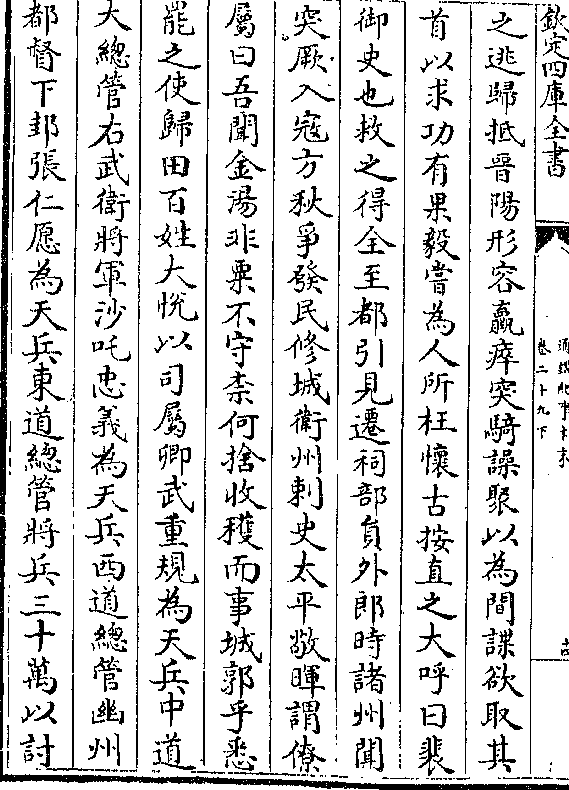 欽定四庫全書
通鑑紀事本末
卷二十九下
之逃歸抵晉陽形容羸瘁突騎譟聚以為間諜欲取其
首以求功有果毅嘗為人所枉懷古按直之大呼曰裴
御史也救之得全至都引見遷祠部員外郎時諸州聞
突厥入寇方秋爭發民修城衛州刺史太平敬暉謂僚
屬曰吾聞金湯非粟不守柰何捨收穫而事城郭乎悉
罷之使歸田百姓大悅以司屬卿武重規為天兵中道
大總管右武衛將軍沙吒忠義為天兵西道總管幽州
都督下邽張仁愿為天兵東道總管將兵三十萬以討